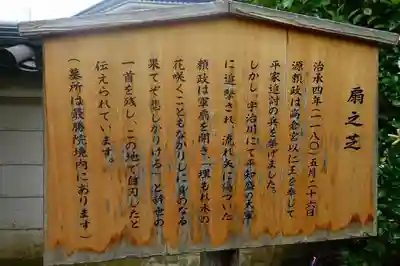 扇之芝
治承四年(一一八〇)五月二十六日
源頼政は高倉宮以仁王を奉じて
平家追討の兵を挙げました。
しかし、宇治川にて平知盛の大軍
に追撃され、流れ矢に傷ついた
頼政は軍扇を開き「埋もれ木の
花咲くこともなかりしに身のなる
果てぞ悲しかりける」と辞世の
一首を残し、この地で自刃したと
伝えられています。
(墓所は最勝院境内にあります)